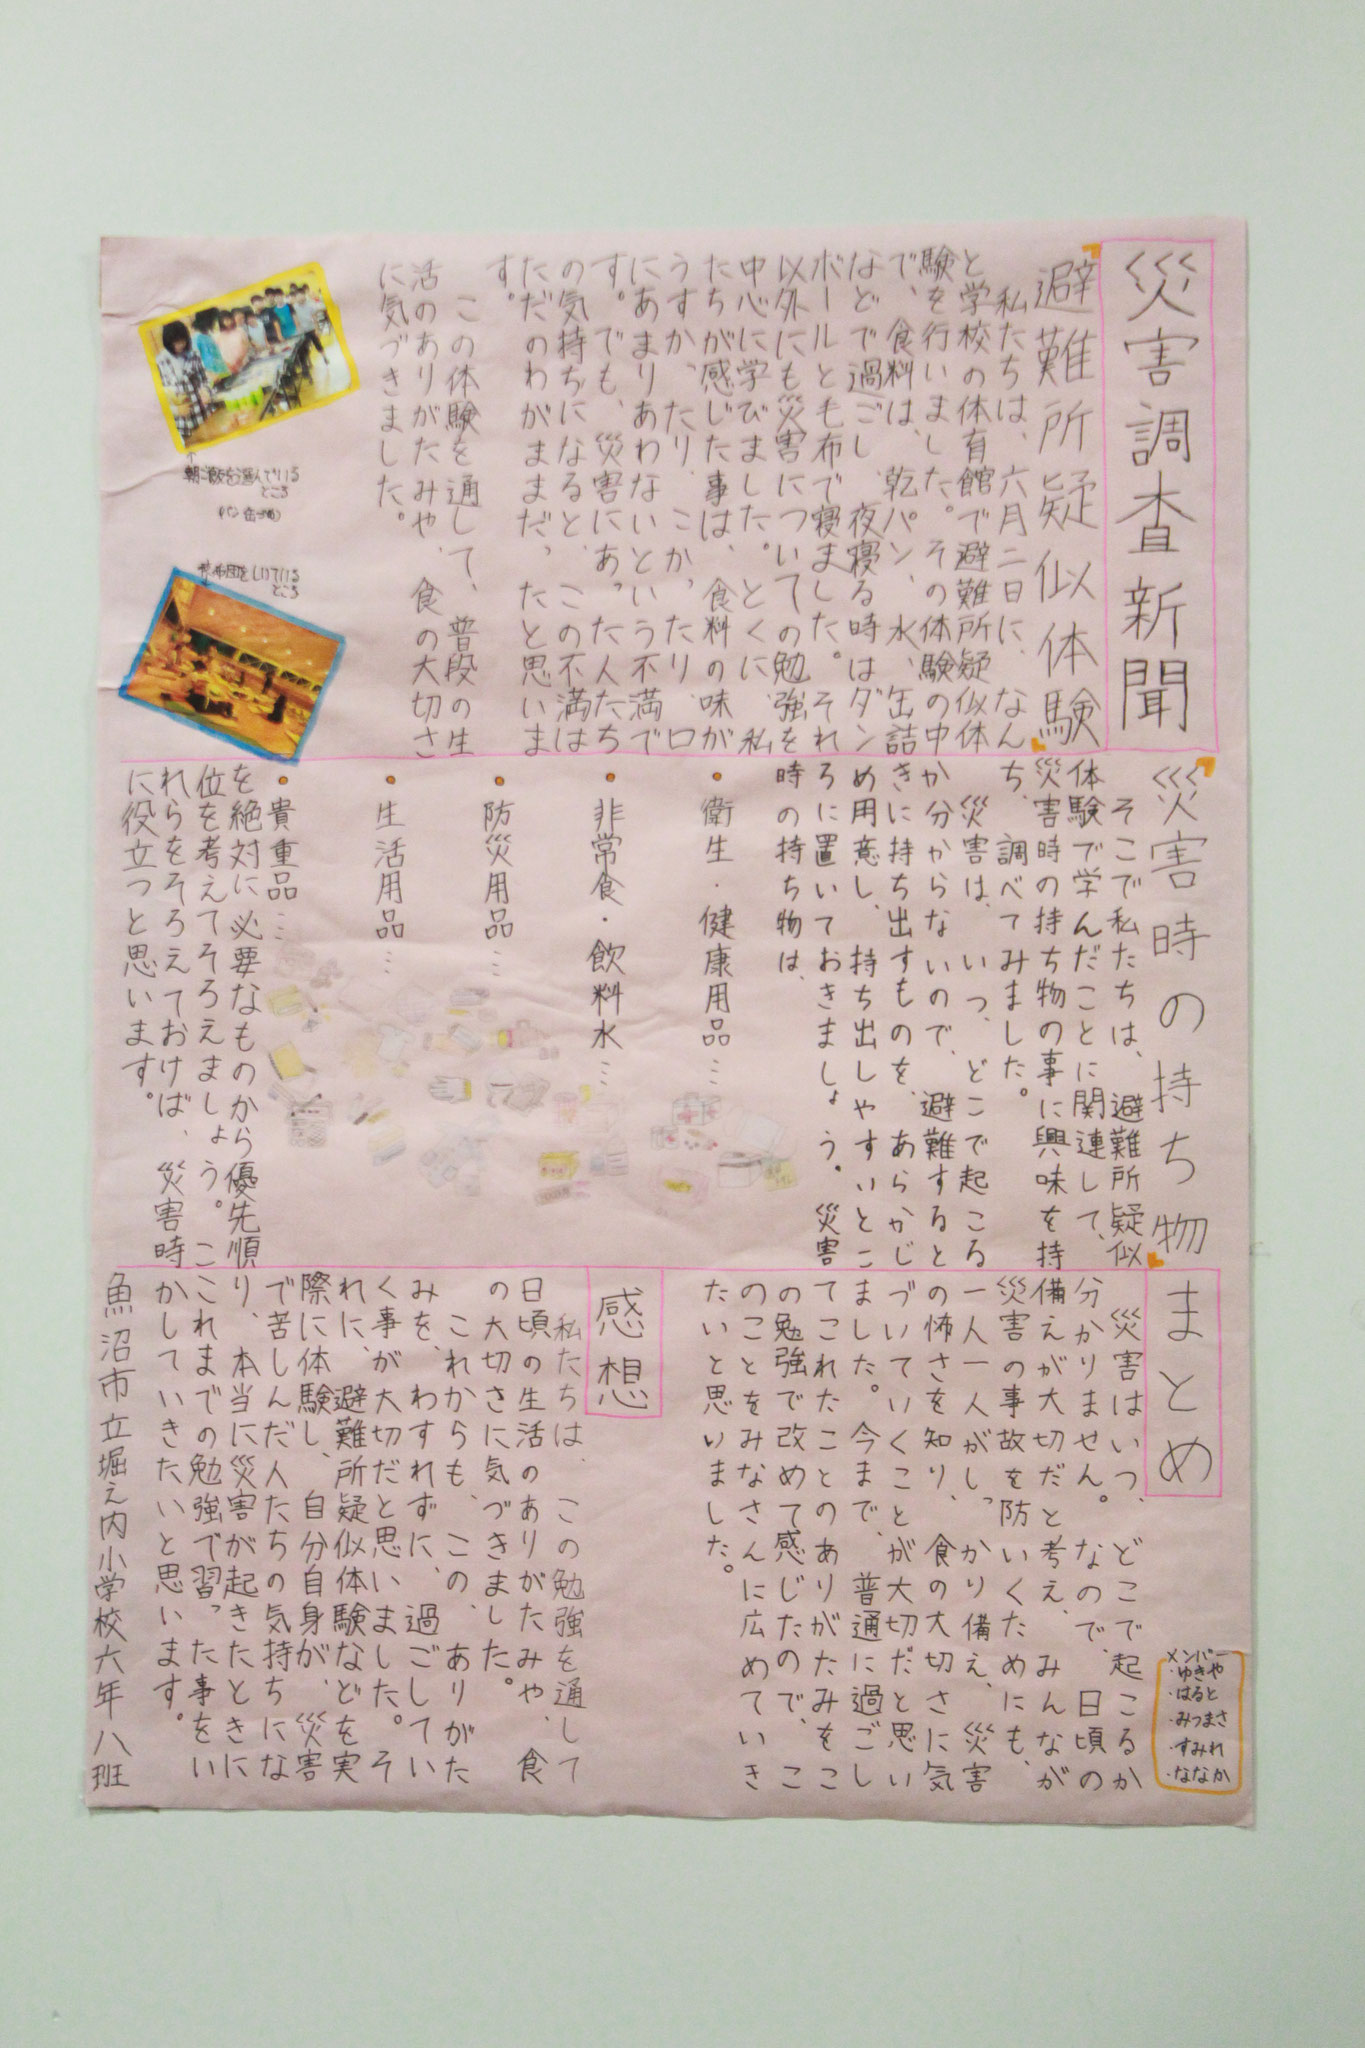 災害調査新聞
避難所疑似体験
私たちは、六月二日に、なん
と学校の体育館で避難所疑似体
験を行いました。その体験の中
で、食料は、乾パン、水、缶詰
などで過ごし、夜寝る時はダン
ボールともも布で寝ました。それ
以外にも災害についての勉強を
中心に学びました。とくに、私
たちが感じた事は、食料の味が
うすかったり、こかったり、口
にあまりあわないという不満で
す。でも、災害にあった人たち
の気持ちになると、この不満は
ただのわがままだったと思いま
す。
この体験を通して、普段の生
活のありがたみや、食の大切さ
に気づきました。
朝ご飯を選んでいる
ところ
(パン缶づめ)
布団をしいている
ところ
災害時の持ち物
そこで私たちは、避難所疑似
体験で学んだことに関連して、
災害時の持ち物の事に興味を持
ち、調べてみました。
災害は、いつ、どこで起こる
か分からないので、避難すると
きに持ち出すものを、あらかじ
め用意し、持ち出しやすいとこ
ろに置いておきましょう。災害
時の持ち物は、
・衛生・健康用品…
・非常食・飲料水…
・防災用品…
・生活用品…
・貴重品…
を絶対に必要なものから優先順
位を考えてそろえましょう。こ
れらをそろえておけば、災害時
に役立つと思います。
まとめ
災害はいつ、どこで起こるか
分かりません。なので、日頃の
備えが大切だと考え、みんなが
災害の事故を防いくためにも、
一人一人がしっかり備え、災害
の怖さを知り、食の大切さに気
づいていくことが大切だと思い
ました。今まで、普通に過ごし
てこれたことのありがたみをこ
の勉強で改めて感じたので、こ
のことをみなさんに広めていき
たいと思いました。
感想
私たちは、この勉強を通して
日頃の生活のありがたみや、食
の大切さに気づきました。
これからも、この、ありがた
みを、わすれずに、過ごしてい
く事が大切だと思いました。そ
れに、避難所疑似体験などを実
際に体験し、自分自身が、災害
で苦しんだ人たちの気持ちにな
り、本当に災害が起きたときに
これまでの勉強で習った事をい
かしていきたいと思います。
魚沼市立堀之内小学校六年八班
メンバー
・ゆきや
・はると
・みつまさ
・すみれ
・ななか